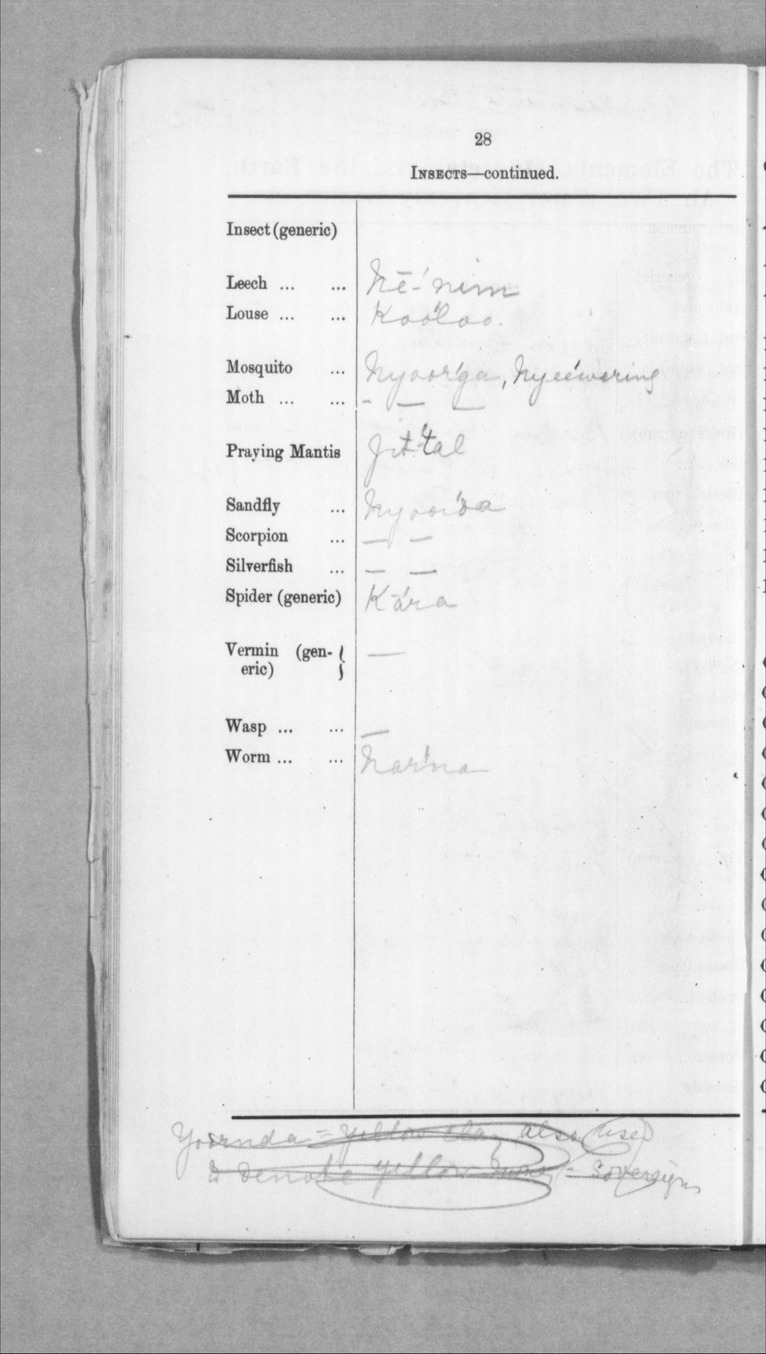 28
INSECTS—continued.
Insect (generic)
Leech ... ... Nē-'nim
Louse ... ... Koo'loo.
Mosquito ... Nyoor'ga, Nyee'wering
Moth ... ... - — —
Praying Mantis Jit'tal
Sandfly ... Nyoor'da
Scorpion ... — —
Silverfish ... — —
Spider (generic) Kā'ra
Vermin (gen- { —
eric) }
Wasp ... ... —
Worm ... ... Nar'na
Yoornda = yellow clay also used
to denote yellow money = Sovereigns